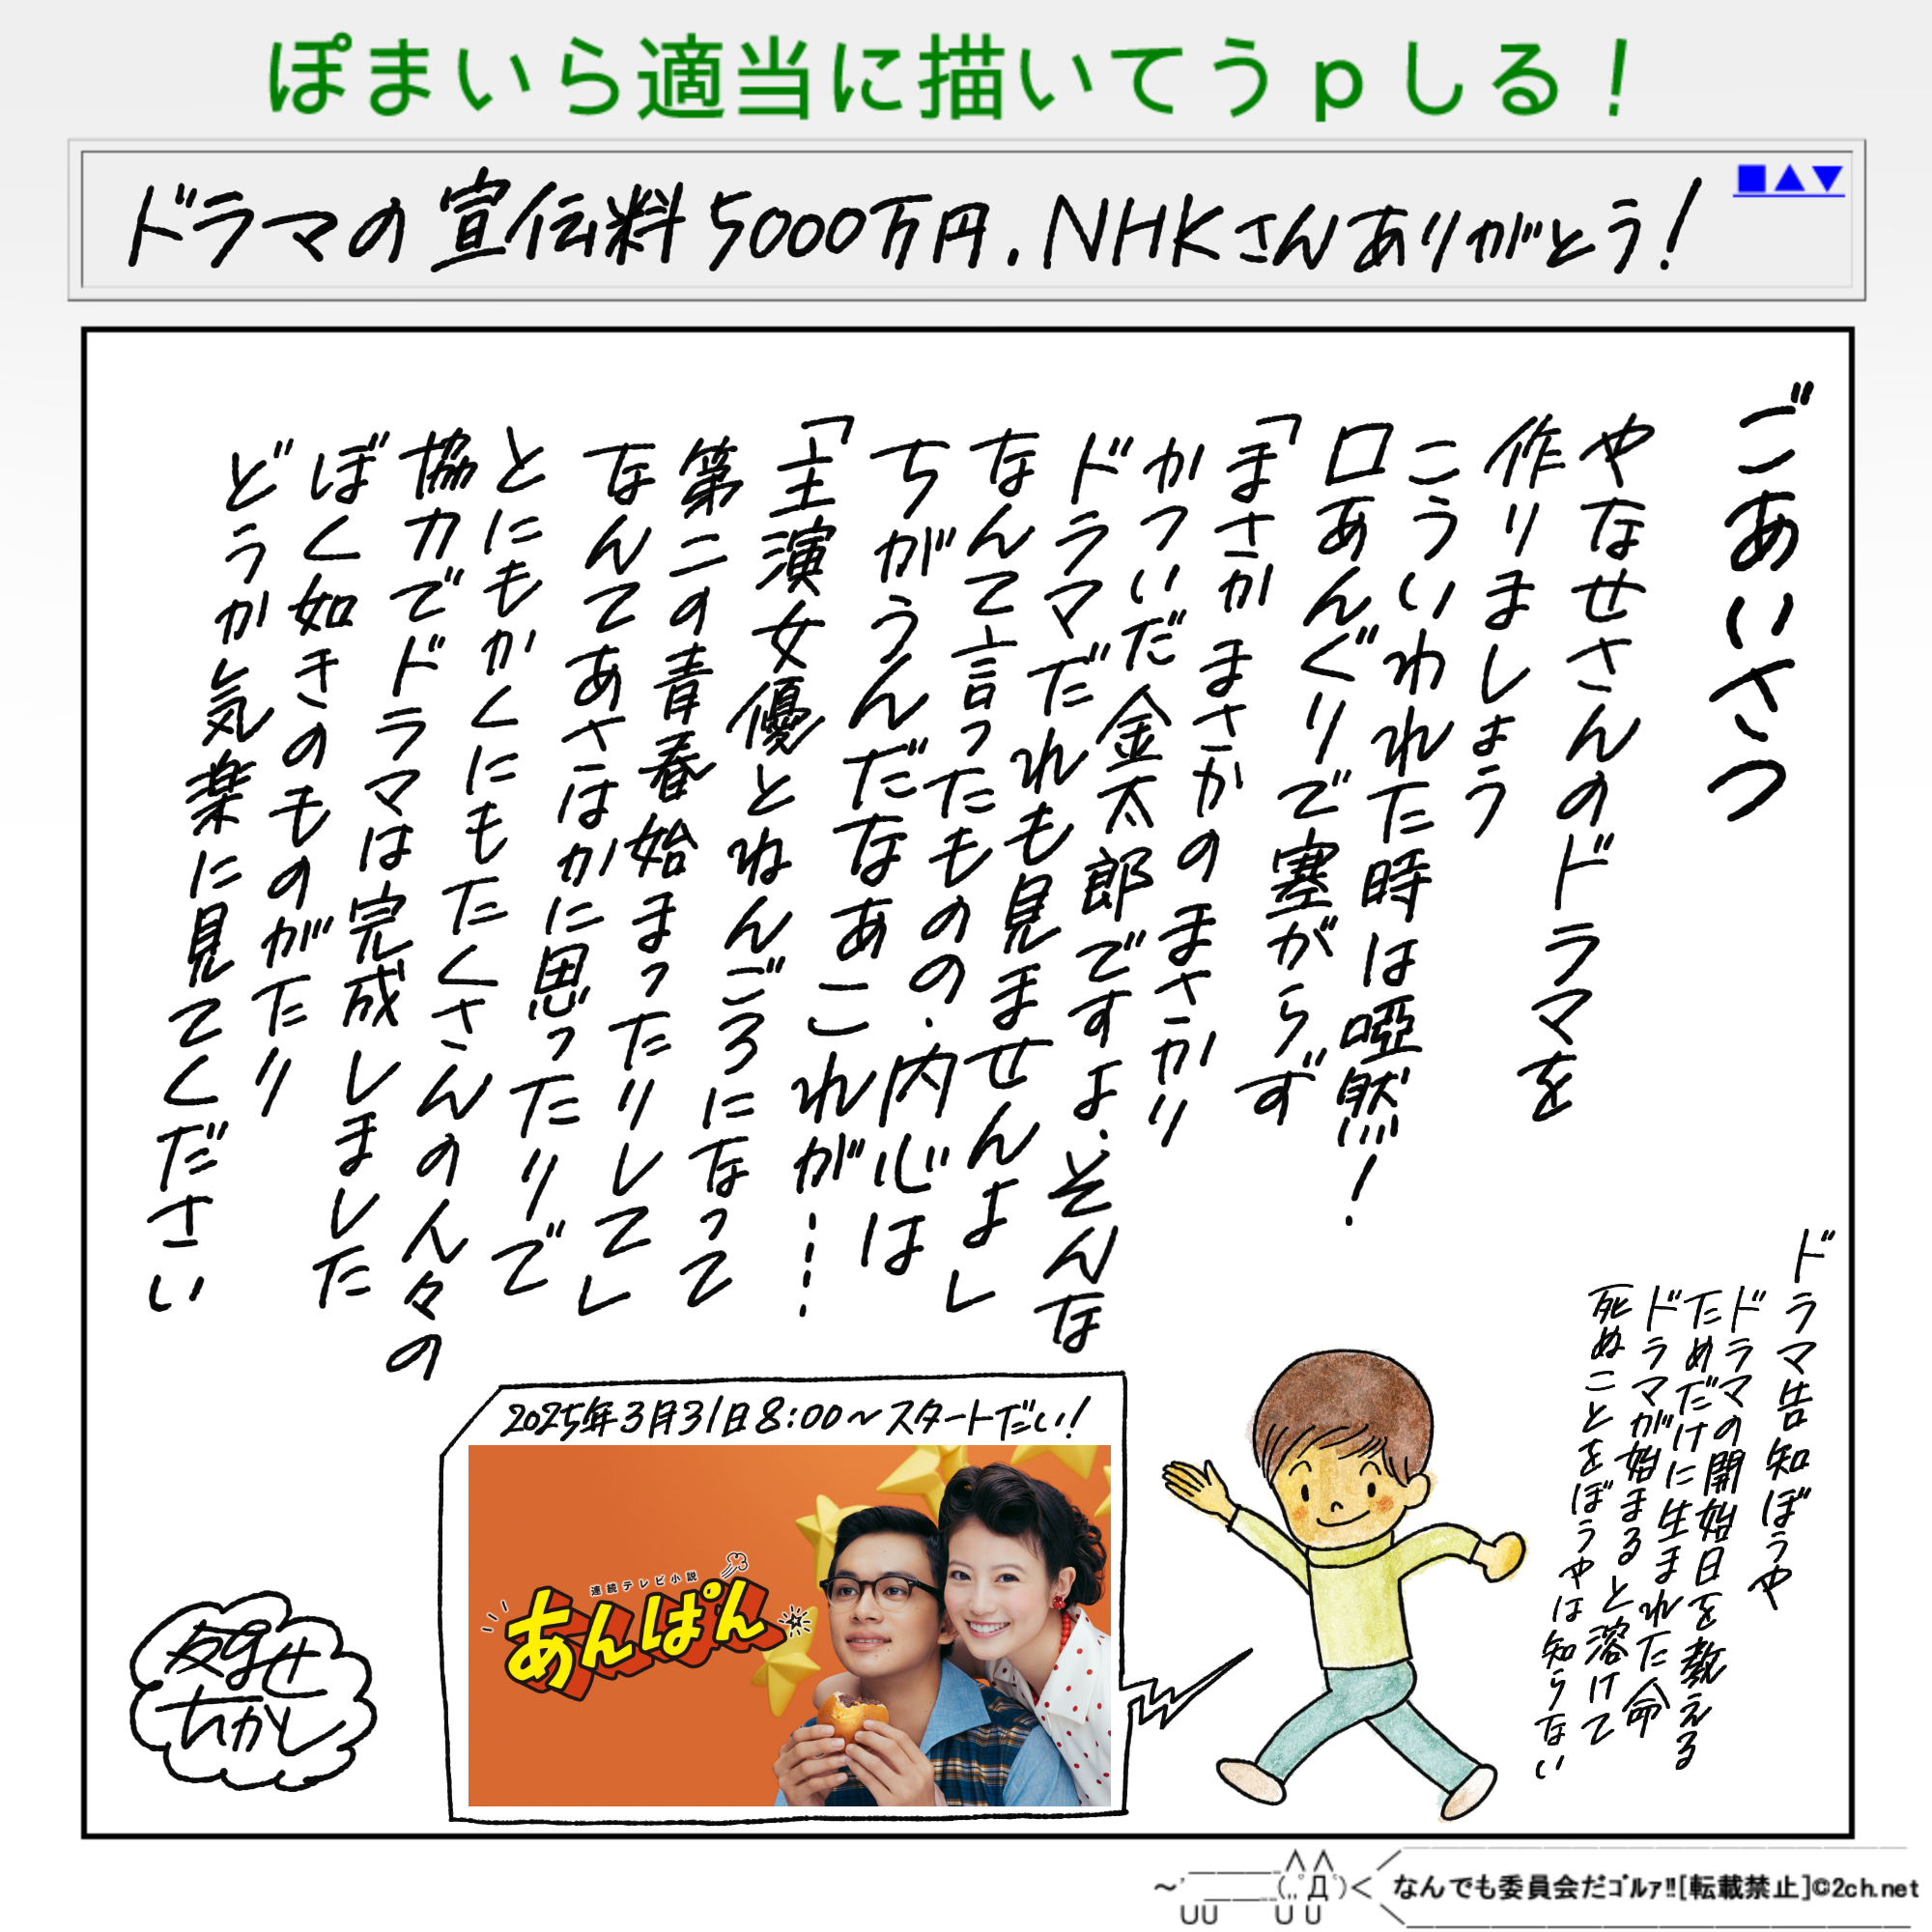 ぽまいら適当に描いてうｐしる！
■▲▼
ドラマの宣伝料5000万円.NHKさんありがとう!
ごあいさつ
やなせさんのドラマを
作りましょう
こういわれた時は啞然!
口あんぐりで塞がらず
「まさかまさかのまさかり
かついだ金太郎ですよ.そんな
ドラマだれも見ませんよ」
なんて言ったものの.内心は
ちがうんだなあこれが……
「主演女優とねんごろになって
第二の青春始まったりして」
なんてあさはかに思ったりで
とにもかくにもたくさんの人々の
協力でドラマは完成しました
ぼく如きのものがたり
どうか気楽に見てください
ドラマ告知ぼうや
ドラマの開始日を教える
ためだけに生まれた命
ドラマが始まると溶けて
死ぬことをぼうやは知らない
2025年3月31日8:00～スタートだい!
連続テレビ小説
あんぱん
たかし
なんでも委員会だｺﾞﾙｧ!![転載禁止]©2ch.net